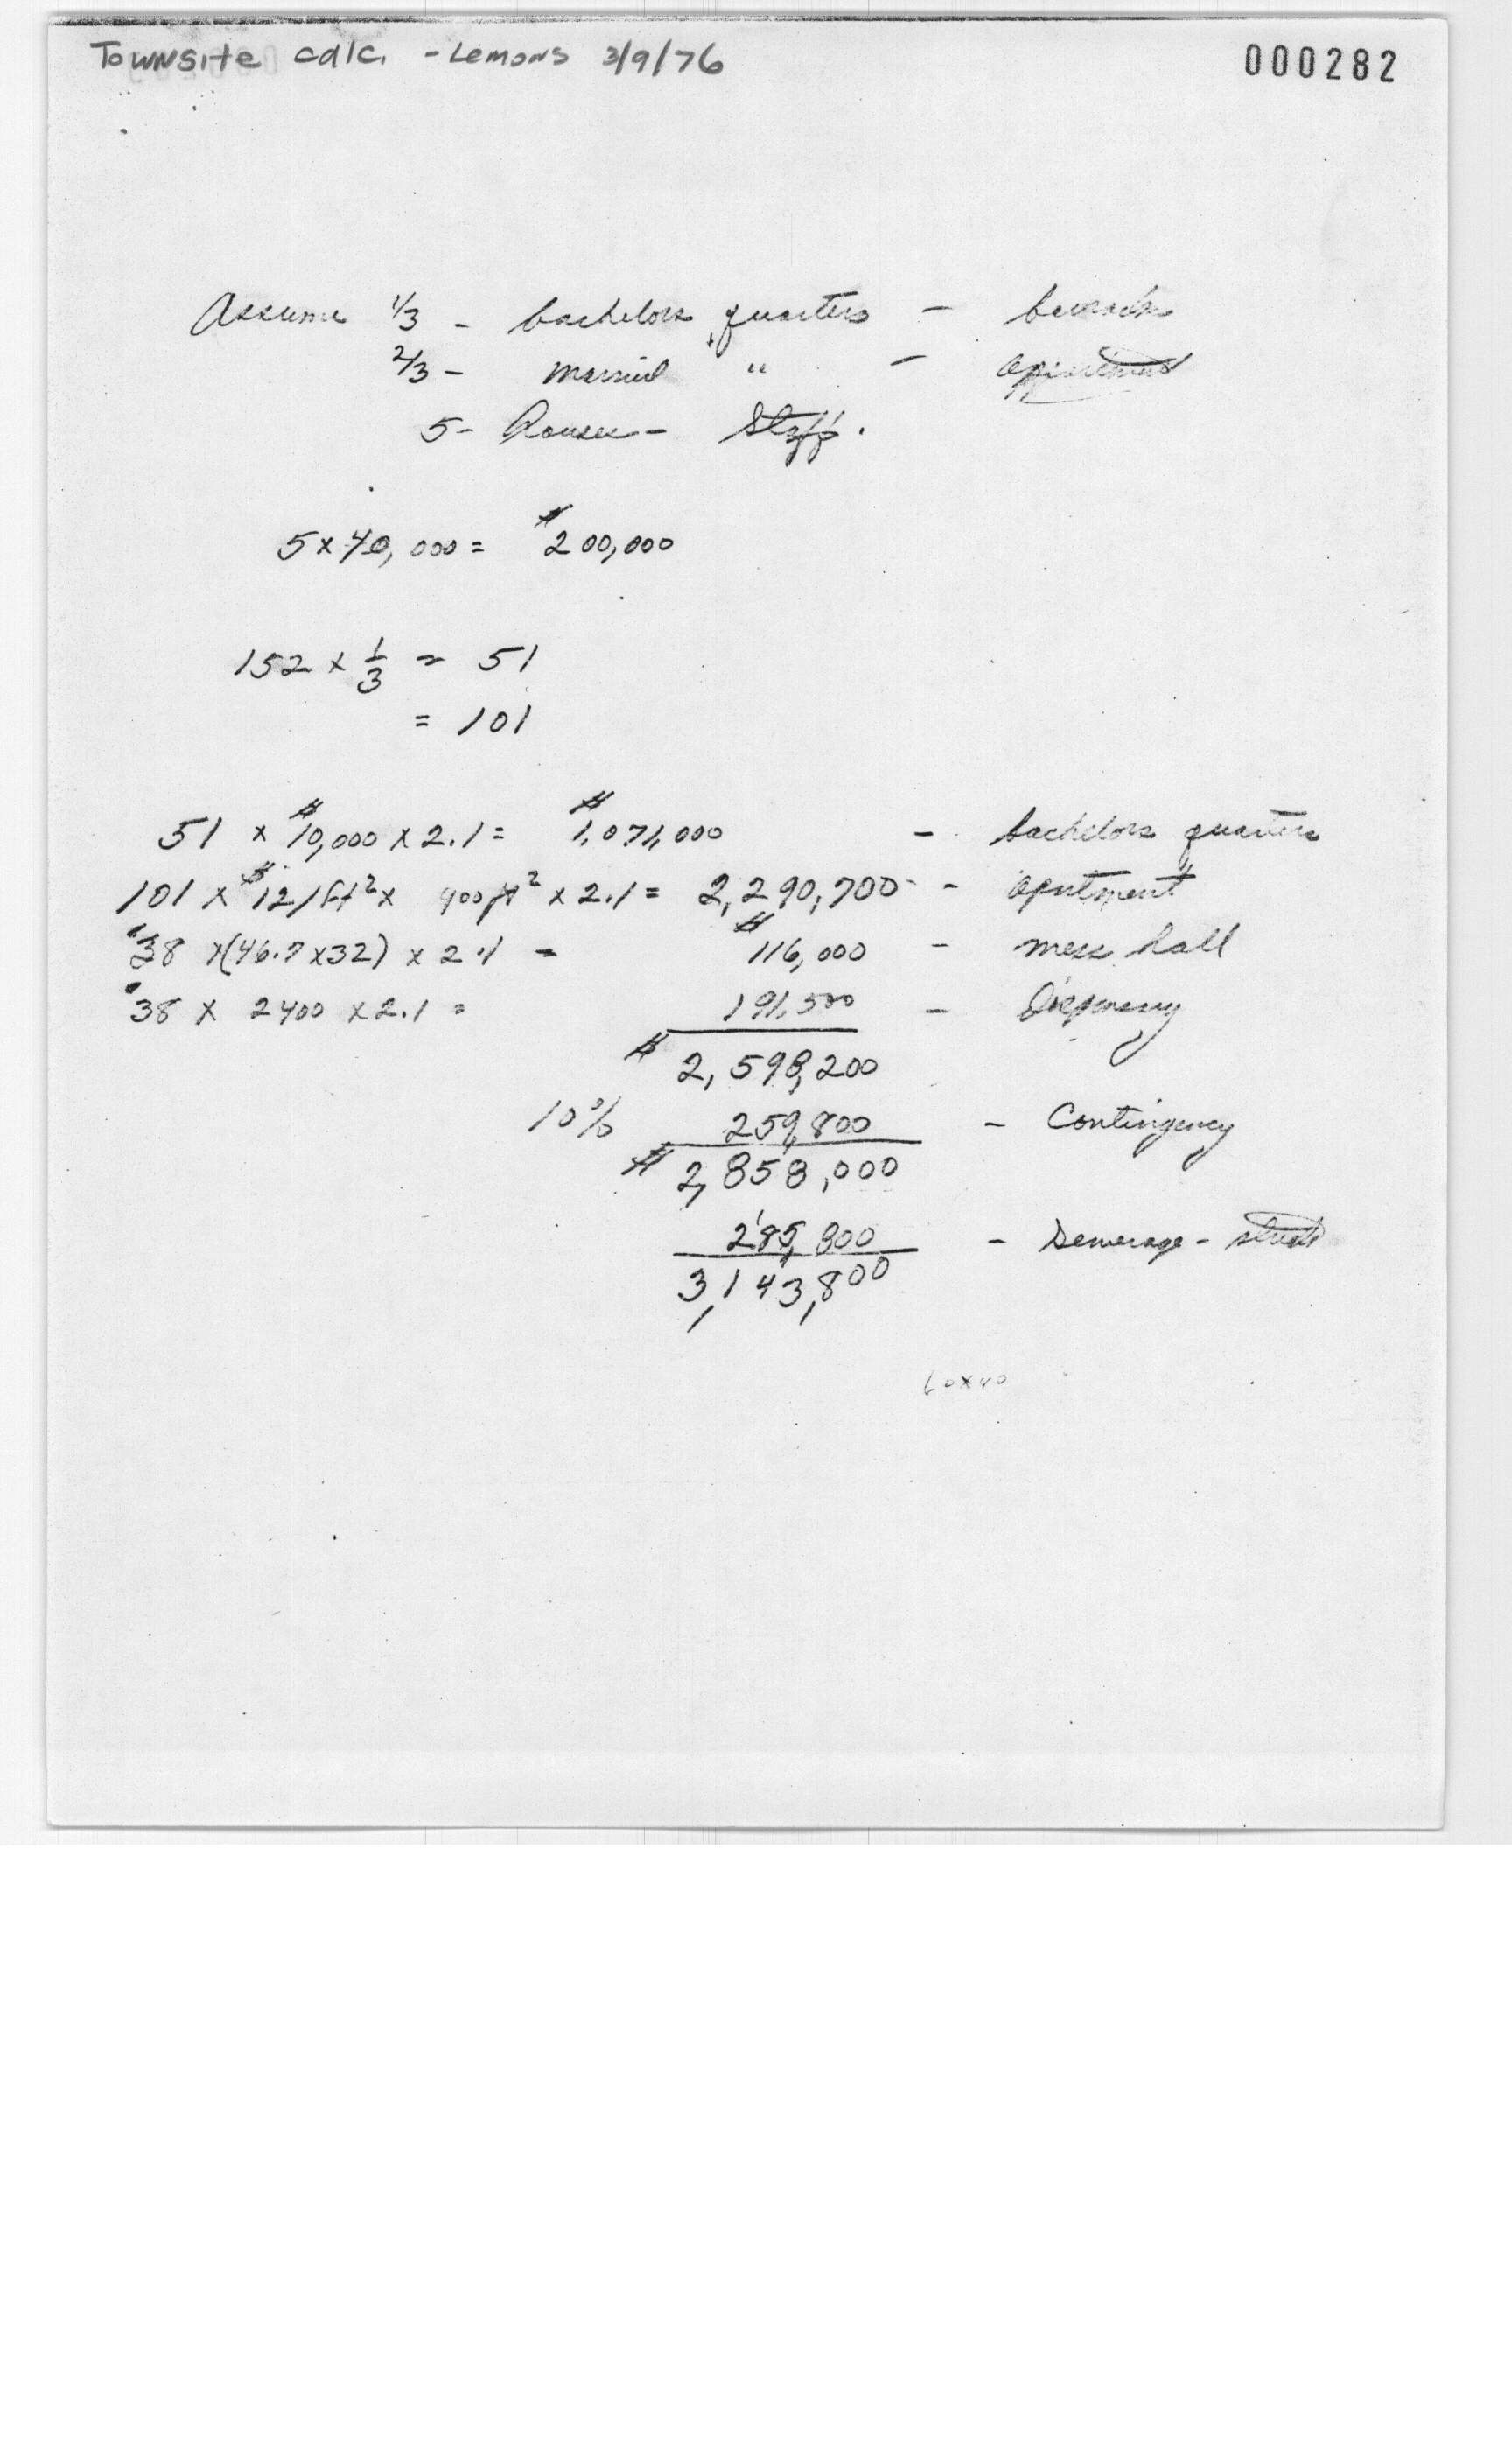 Townsite calc. - Lemons 3/9/76 000282
Assume 1/3 - bachelors quarters - barracks
2/3 - married " - appartment
5 - Houses - Staff.
5 x 40,000 = $200,000
152 x 1/3 = 51
= 101
51 x $10,000 x 2.1 = $1,071,000 - bachelors quarters
101 x $12/ft² x 900 ft² x 2.1 = 2,290,700 - apartment
$38 x (46.7 x 32) x 2.1 = $116,000 - mess hall
$38 x 2400 x 2.1 = 191,500 - Dispensary
$2,598,200
10% 259,800 - Contingency
$2,858,000
285,800 - Sewerage - streets
3,143,800
60x40